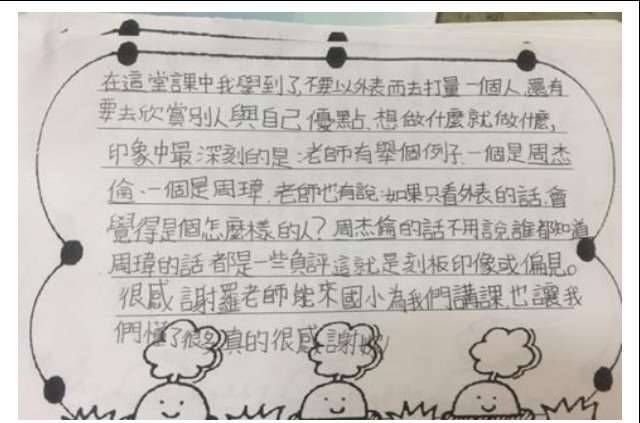 在這堂課中我學到了,不要以外表而去打量一個人,還有
要去欣賞別人與自己優點、想做什麼就做什麼,
印象中最深刻的是:老師有舉個例子,一個是周杰
倫、一個是周瑋,老師也有說:如果只看外表的話,會
覺得是個怎麼樣的人?周杰倫的話不用說,誰都知道
周瑋的話都是一些負評,這就是刻板印像或偏見。
很感謝羅老師能來國小為我們講課,也讓我
們懂了很多真的很感謝妳!